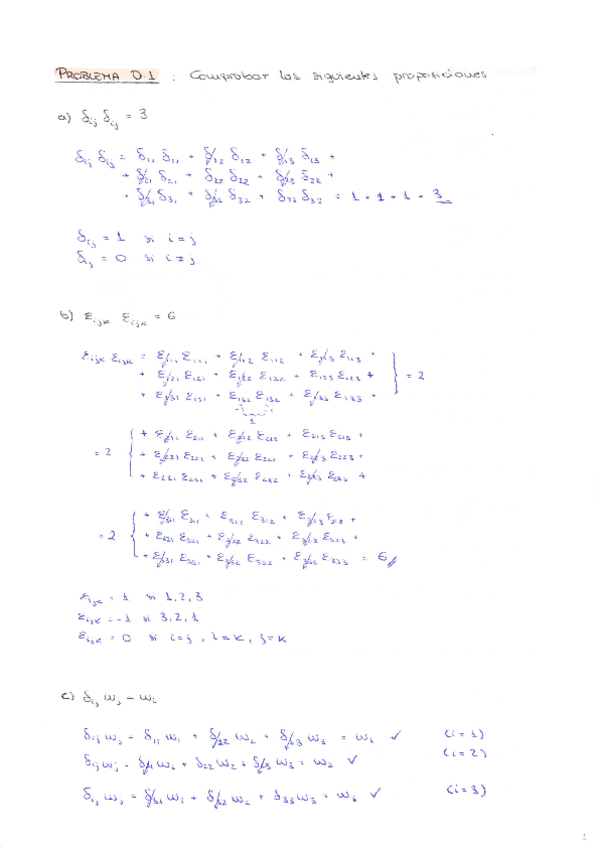 PROBLEMA D.1 : Comprobar las siguientes proposiciones
a) δij δij = 3
δij δij = δ11 δ11 + δ12 δ12 + δ13 δ13 +
+ δ21 δ21 + δ22 δ22 + δ23 δ23 +
+ δ31 δ31 + δ32 δ32 + δ33 δ33 = 1 + 1 + 1 = 3
δij = 1 si i = j
δij = 0 si i ≠ j
b) εijk εijk = 6
εijk εijk = ε111 ε111 + ε112 ε112 + ε113 ε113 +
+ ε121 ε121 + ε122 ε122 + ε123 ε123 + = 2
+ ε131 ε131 + ε132 ε132 + ε133 ε133 +
1
+ ε211 ε211 + ε212 ε212 + ε213 ε213 +
= 2 + ε221 ε221 + ε222 ε222 + ε223 ε223 +
+ ε231 ε231 + ε232 ε232 + ε233 ε233 +
+ ε311 ε311 + ε312 ε312 + ε313 ε313 +
= 2 + ε321 ε321 + ε322 ε322 + ε323 ε323 +
+ ε331 ε331 + ε332 ε332 + ε333 ε333 = 6
εijk = 1 si 1,2,3
εijk = -1 si 3,2,1
εijk = 0 si i=j, i=k, j=k
c) δij ωj = ωi
δij ωj = δ11 ω1 + δ12 ω2 + δ13 ω3 = ω1 ✓ (i=1)
δij ωj = δ21 ω1 + δ22 ω2 + δ23 ω3 = ω2 ✓ (i=2)
δij ωj = δ31 ω1 + δ32 ω2 + δ33 ω3 = ω3 ✓ (i=3)
1